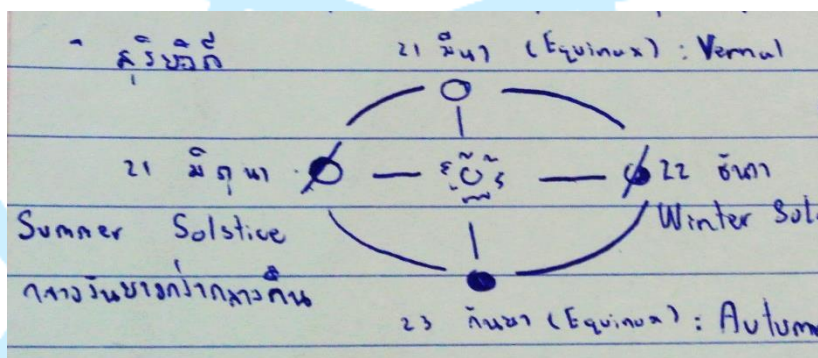 - สุริยวิถี
21 มีนา (Equinux) : Vernal
21 มิถุนา
22 ธันวา
Summer Solstice
Winter Sol
กลางวันยาวกว่ากลางคืน
23 กันยา (Equinux) : Autumn